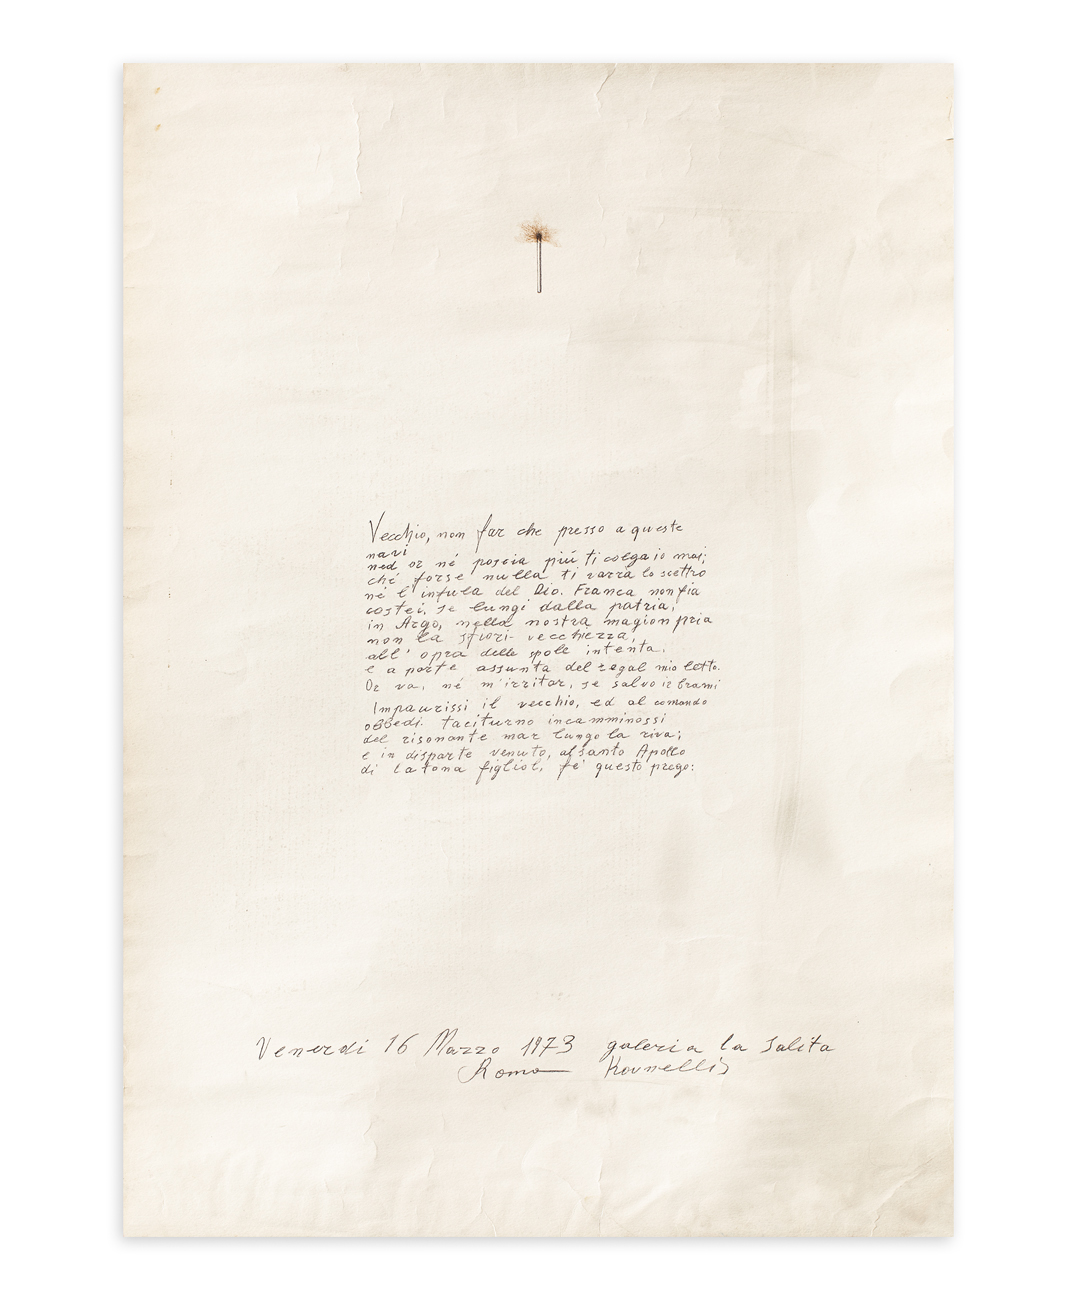 Vecchio, non far che presso a queste
navi
ned or né poscia più ti colga io mai;
ché forse nulla ti varrà lo scettro
né l'infula del Dio. Franca non fia
costei, se lungi dalla patria,
in Argo, nella nostra magion pria
non la sfiori vecchiezza,
all'opra delle spole intenta.
e a parte assunta del regal mio letto.
Or va, né m'irritar, se salvo ir brami
Impaurissi il vecchio, ed al comando
obbedì. taciturno incamminossi
del risonante mar lungo la riva;
e in disparte venuto, al santo Apollo
di Latona figliol, fe' questo prego:
Venerdi 16 Marzo 1973 galeria la Salita
Roma Kounellis